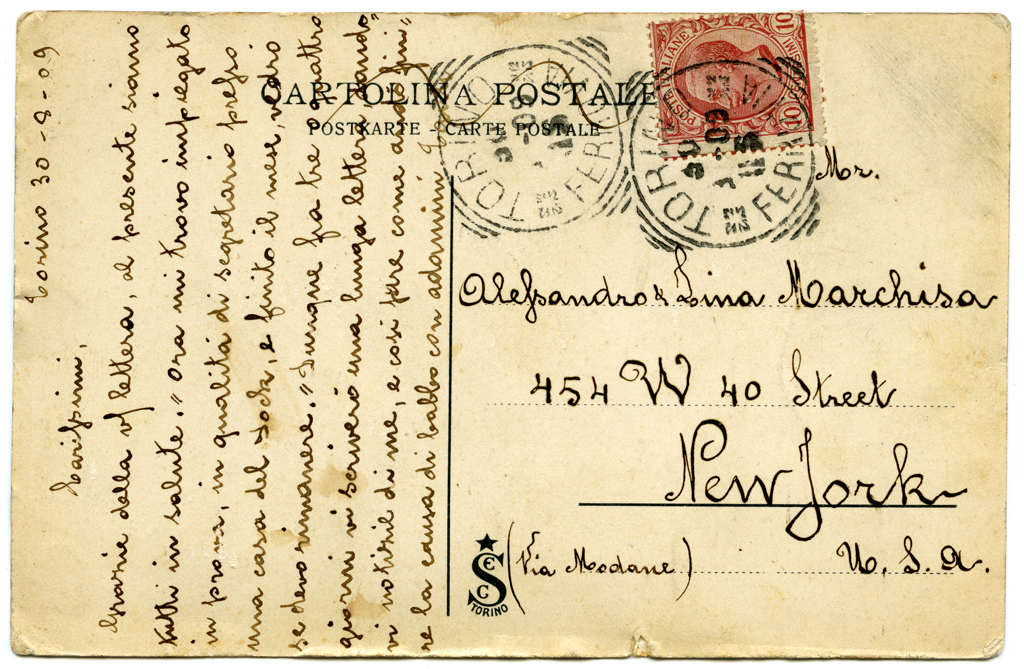 Torino 30-8-09
Carissimi,
Grazie della v/ lettera, al presente siamo
tutti in salute." Ora mi trovo impiegato
in prova, in qualità di segretario presso
una casa del Dock, e finito il mese, vedro
se devo rimanere." Dunque fra tre o quattro
giorni vi scriverò una lunga lettera, dando"
vi notizie di me, e così pure come andò a fini"
re la causa di babbo con
CARTOLINA POSTALE
POSTKARTE - CARTE POSTALE
POSTE ITALIANE
10 10
TORINO
FERROVIA
TORINO
FERROVIA
Mr.
Alessandro & Lina Marchisa
454 W 40 Street
New York
(Via Modane) U. S. A.
SEC
TORINO